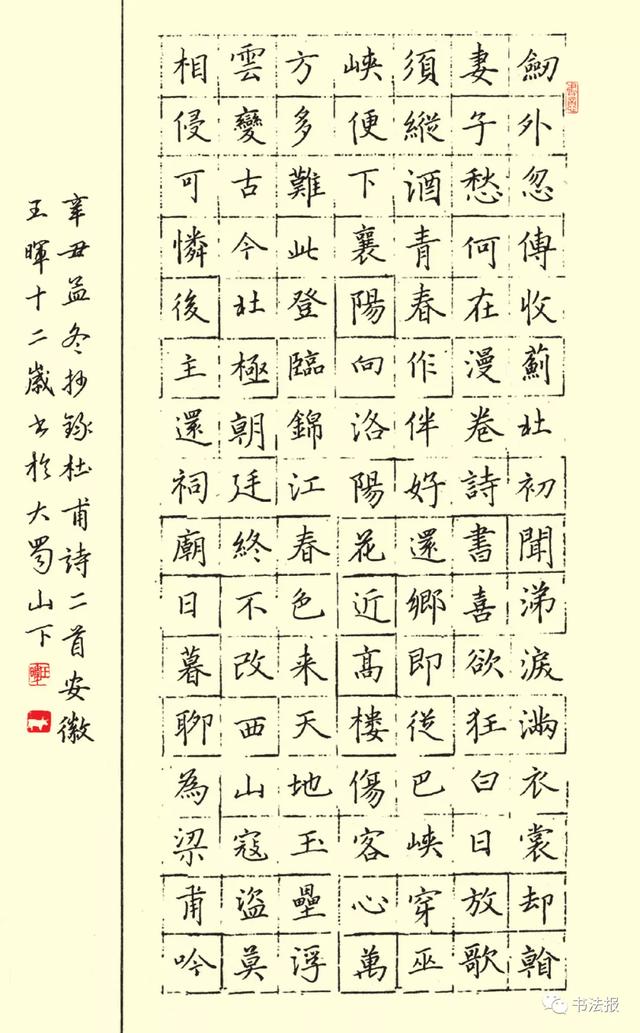 劒外忽傳收薊北初聞涕淚滿衣裳却看
妻子愁何在漫卷詩書喜欲狂白日放歌
須縱酒青春作伴好還鄉即從巴峽穿巫
峽便下襄陽向洛陽花近高樓傷客心萬
方多難此登臨錦江春色来天地玉壘浮
雲變古今北極朝廷終不改西山寇盜莫
相侵可憐後主還祠廟日暮聊為梁甫吟
辛丑孟冬抄錄杜甫詩二首安徽
王暉十二歲書於大蜀山下
书法报